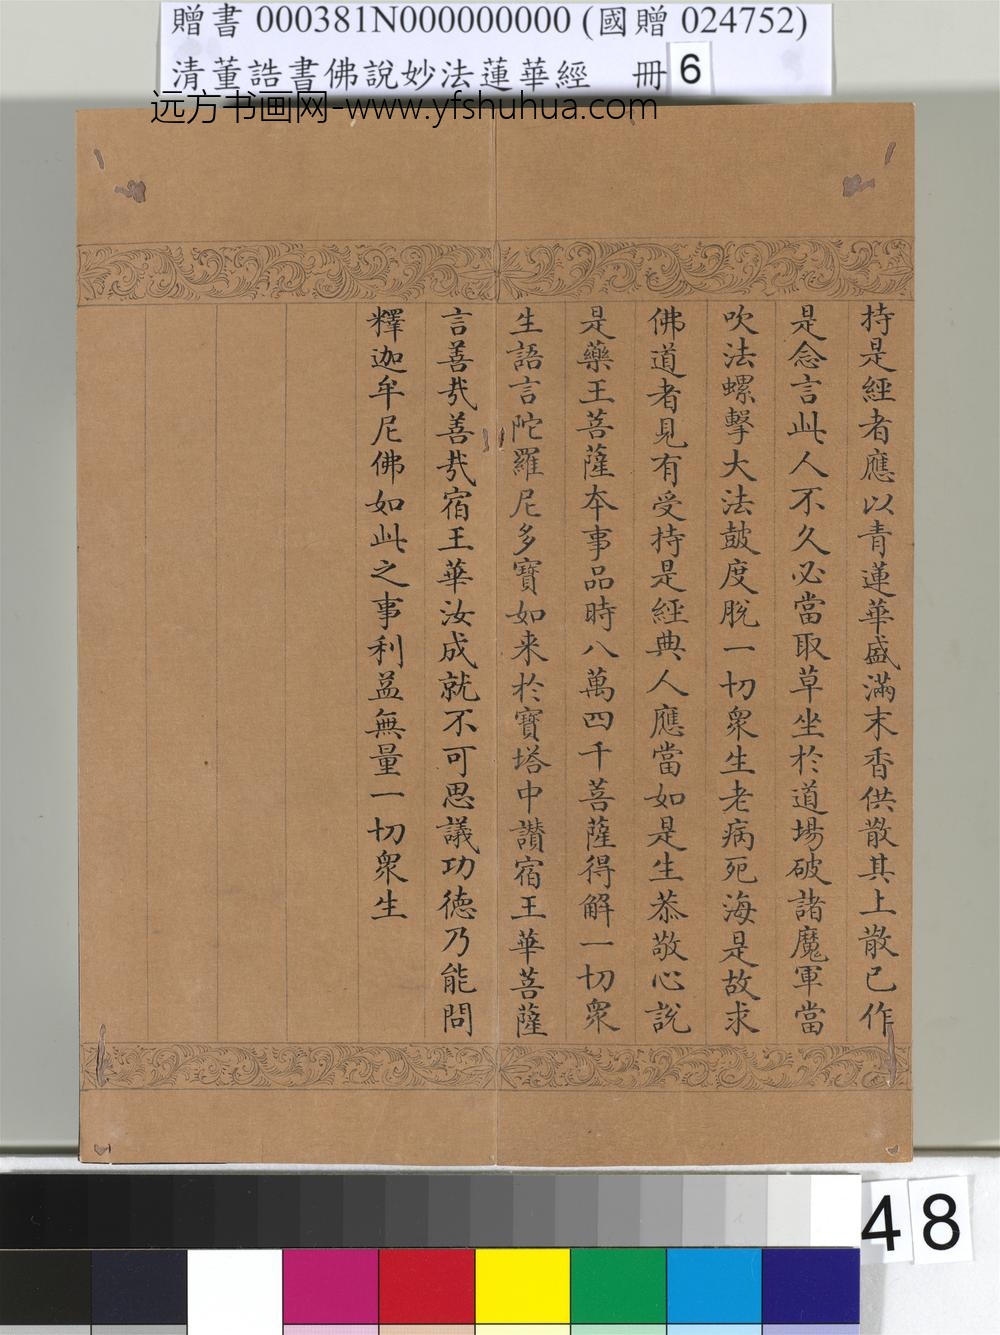 贈書 000381N000000000 (國贈 024752)
清董誥書佛說妙法蓮華經 冊 6
远方书画网-www.yfshuhua.com
持是經者應以青蓮華盛滿末香供散其上散已作
是念言此人不久必當取草坐於道場破諸魔軍當
吹法螺擊大法鼓度脫一切眾生老病死海是故求
佛道者見有受持是經典人應當如是生恭敬心說
是藥王菩薩本事品時八萬四千菩薩得解一切眾
生語言陀羅尼多寶如来於寶塔中讃宿王華菩薩
言善㢤善㢤宿王華汝成就不可思議功德乃能問
釋迦牟尼佛如此之事利益無量一切眾生
48